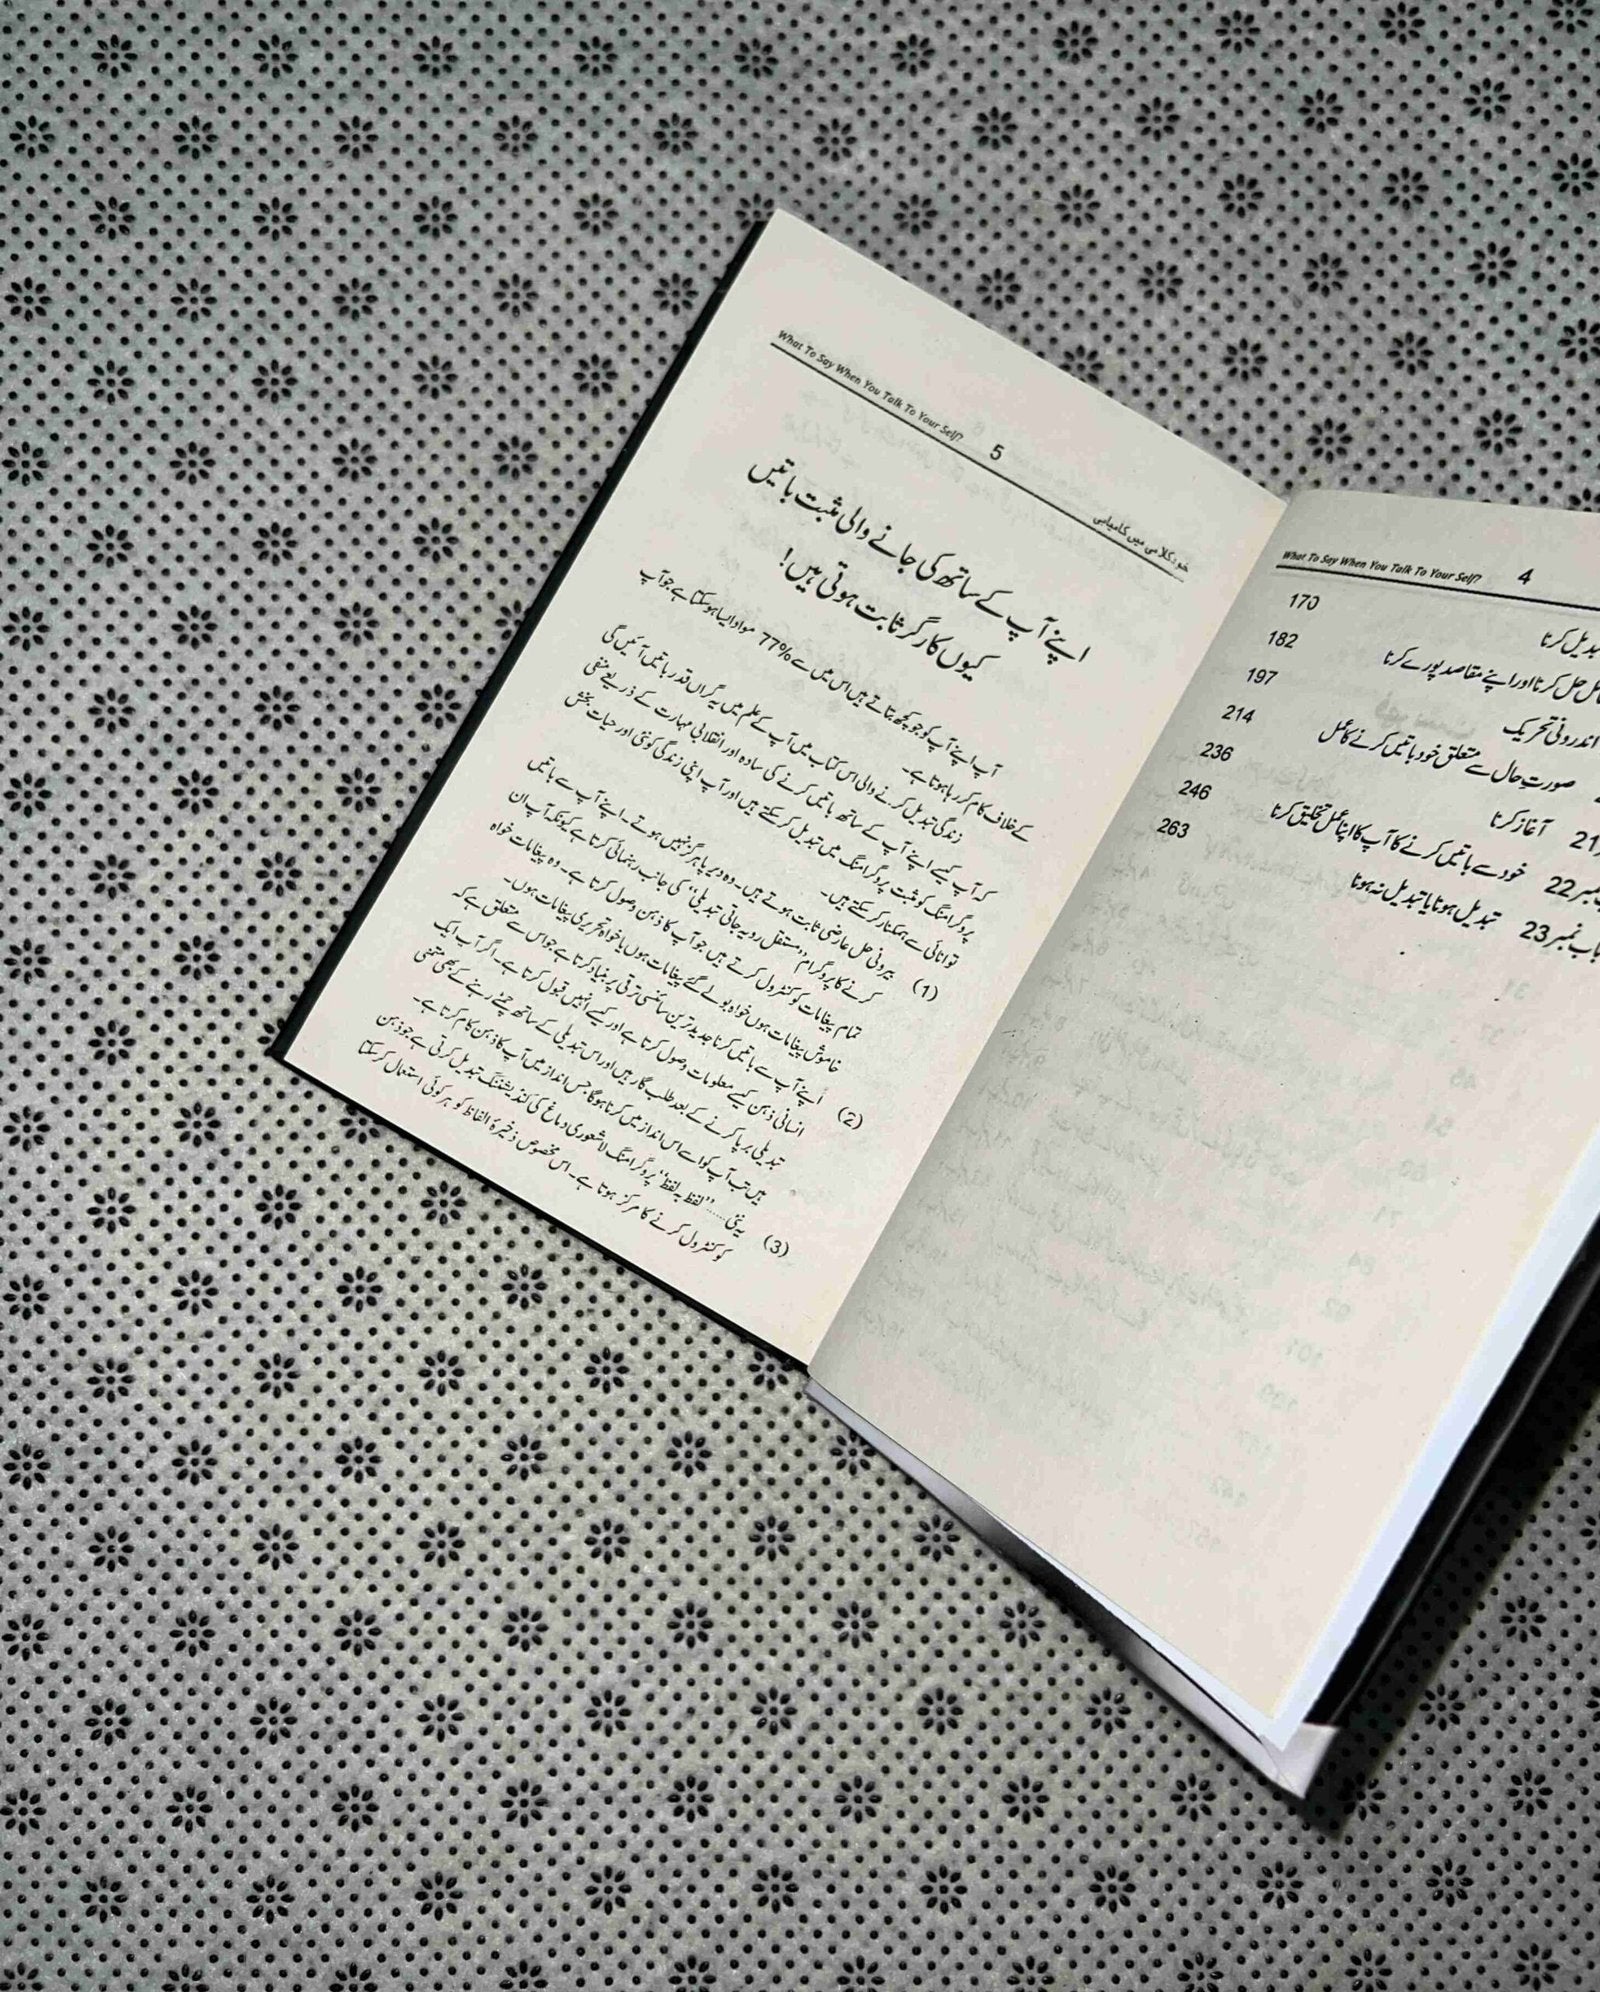 What To Say When You Talk To Your Self? 4
تبدیل کرنا 170
حل کرنا اور اپنے مقاصد پورے کرنا 182
اندرونی تحریک 197
صورتِ حال سے متعلق خود باتیں کرنے کا عمل 214
21 آغاز کرنا 236
نمبر 22 خود سے باتیں کرنے کا آپ کا اپنا عمل تخلیق کرنا 246
باب نمبر 23 تبدیل ہونا یا تبدیل نہ ہونا 263
What To Say When You Talk To Your Self? 5 خود کلامی میں کامیابی
اپنے آپ کے ساتھ کی جانے والی مثبت باتیں
کیوں کارگر ثابت ہوتی ہیں!
آپ اپنے آپ کو جو کچھ بتاتے ہیں اس میں سے 77% مواد ایسا ہو سکتا ہے جو آپ
کے خلاف کام کر رہا ہوتا ہے۔
زندگی تبدیل کرنے والی اس کتاب میں آپ کے علم میں یہ گراں قدر باتیں آئیں گی
کہ آپ کیسے اپنے آپ کے ساتھ باتیں کرنے کی سادہ اور انقلابی مہارت کے ذریعے منفی
پروگرامنگ کو مثبت پروگرامنگ میں تبدیل کر سکتے ہیں اور آپ اپنی زندگی کو نئی اور حیات بخش
توانائی سے ہمکنار کر سکتے ہیں۔
(1) بیرونی حل عارضی ثابت ہوتے ہیں۔ وہ دیرپا ہرگز نہیں ہوتے۔ اپنے آپ سے باتیں
کرنے کا پروگرام ”مستقل رویہ جاتی تبدیلی“ کی جانب رہنمائی کرتا ہے کیونکہ آپ ان
تمام پیغامات کو کنٹرول کرتے ہیں جو آپ کا ذہن وصول کرتا ہے۔ وہ پیغامات خواہ
خاموش پیغامات ہوں خواہ بولے گئے پیغامات ہوں یا خواہ تحریری پیغامات ہوں۔
(2) اپنے آپ سے باتیں کرنا جدید ترین سائنسی ترقی پر بنیاد کرتا ہے جو اس سے متعلق ہے کہ
انسانی ذہن کیسے معلومات وصول کرتا ہے اور کیسے انہیں قبول کرتا ہے۔ اگر آپ ایک
تبدیلی برپا کرنے کے بعد طلب گار ہیں اور اس تبدیلی کے ساتھ چمٹے رہنے کے بھی متمنی
ہیں تب آپ کو اسے اس انداز میں کرنا ہوگا جس انداز میں آپ کا ذہن کام کرتا ہے۔
(3) یعنی ..... ”لفظ بہ لفظ“ پروگرامنگ لاشعوری دماغ کی کنڈیشننگ تبدیل کرتی ہے جو ذہن
کو کنٹرول کرنے کا مرکز ہوتا ہے۔ اس مخصوص ذخیرۂ الفاظ کو ہر کوئی استعمال کر سکتا